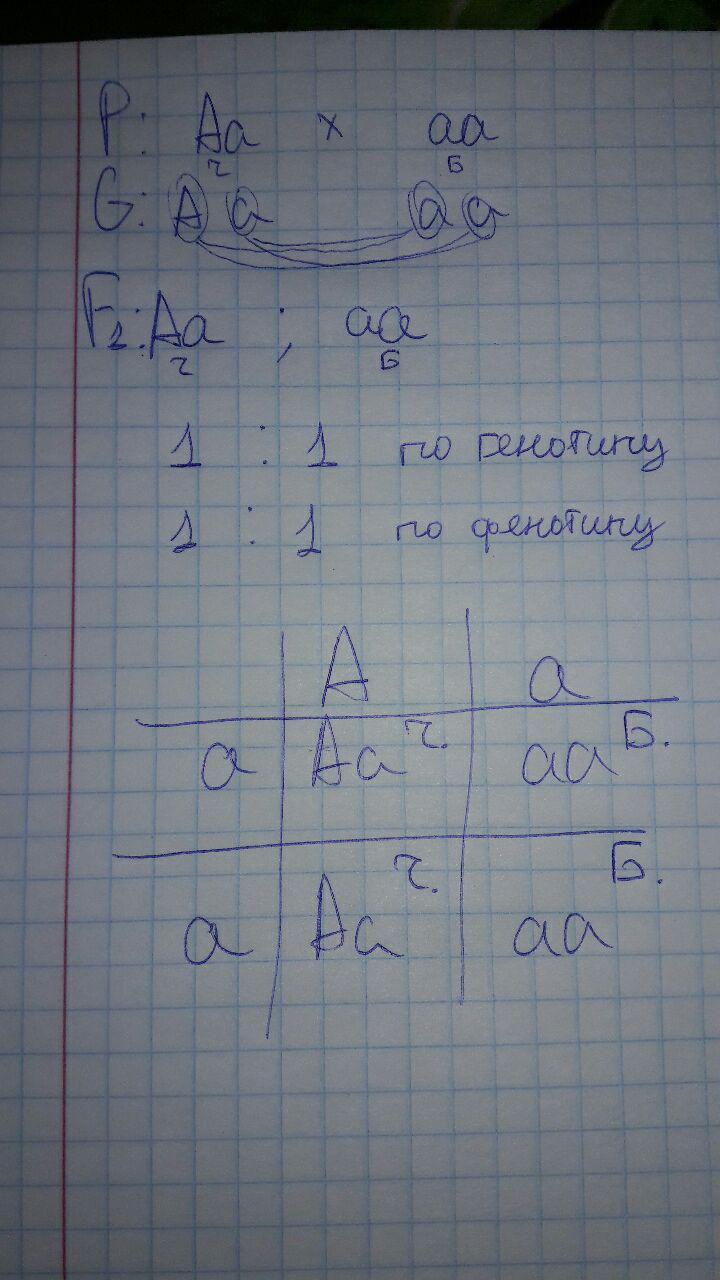 P: Aa × aa
ч Б
G: A a a a
F₂: Aa ; aa
ч Б
1 : 1 по генотипу
1 : 1 по фенотипу
A a
a Aa ч. aa Б.
a Aa ч. aa Б.